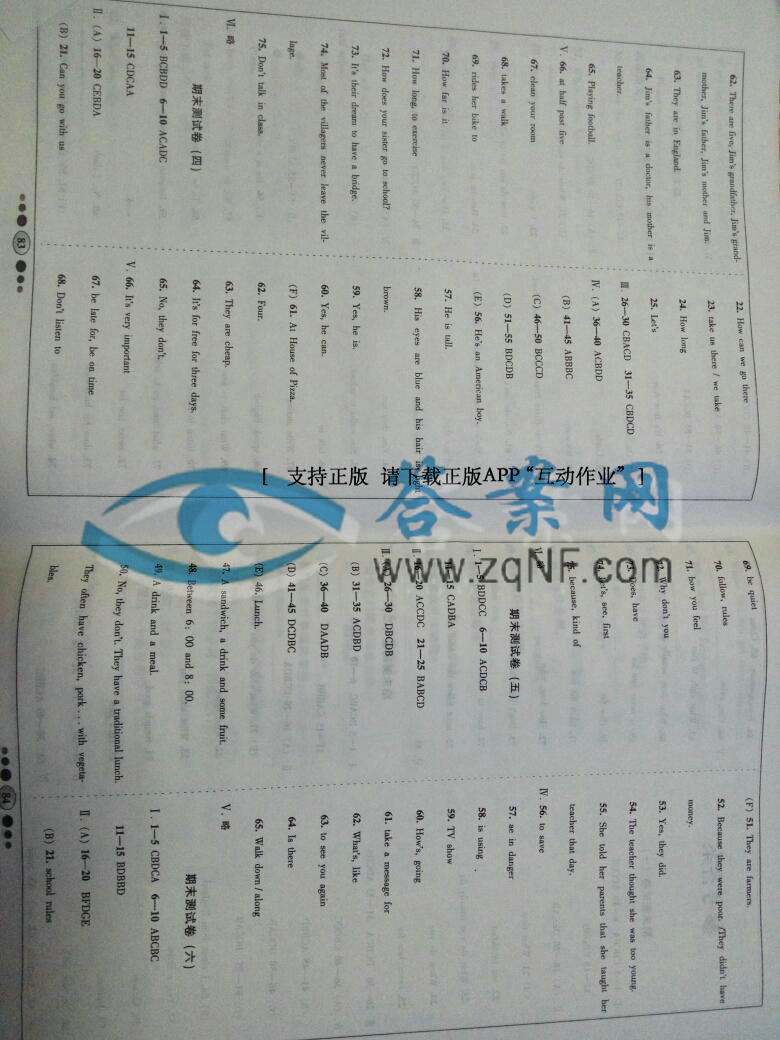 62. There are five, Jim's grandfather, Jim's grand-
mother, Jim's father, Jim's mother and Jim.
63. They are in England.
64. Jim's father is a doctor, his mother is a
teacher.
65. Playing football.
Ⅴ. 66. at half past five
67. clean your room
68. takes a walk
69. rides her bike to
70. How far is it
71. How long, to exercise
72. How does your sister go to school?
73. It's their dream to have a bridge.
74. Most of the villagers never leave the vil-
lage.
75. Don't talk in class.
Ⅵ. 略
期末测试卷(四)
Ⅰ. 1—5 BCBDD 6—10 ACADC
11—15 CDCAA
Ⅱ. (A) 16—20 CEBDA
(B) 21. Can you go with us
83
22. How can we go there
23. take us there / we take
24. How long
25. Let's
Ⅲ. 26—30 CBACD 31—35 CBDCD
Ⅳ. (A) 36—40 ACBDD
(B) 41—45 ABBBC
(C) 46—50 BCCCD
(D) 51—55 BDCDB
(E) 56. He's an American boy.
57. He is tall.
58. His eyes are blue and his hair is
brown.
59. Yes, he is.
60. Yes, he can.
(F) 61. At House of Pizza.
62. Four.
63. They are cheap.
64. It's for free for three days.
65. No, they don't.
Ⅴ. 66. It's very important
67. be late for, be on time
68. Don't listen to
[ 支持正版 请下载正版APP“互动作业” ]
答案网
www.zqNF.com
69. be quiet
70. follow, rules
71. how you feel
Why don't you
Does, have
Let's, see, first
because, kind of
期末测试卷(五)
Ⅰ. 1—5 BDDCC 6—10 ACDCB
CADBA
ACCDC 21—25 BABCD
26—30 DBCDB
(B) 31—35 ACDBD
(C) 36—40 DAADB
(D) 41—45 DCDBC
(E) 46. Lunch.
47. A sandwich, a drink and some fruit.
48. Between 6:00 and 8:00.
49. A drink and a meal.
50. No, they don't. They have a traditional lunch.
They often have chicken, pork... with vegeta-
bles.
84
(F) 51. They are farmers.
52. Because they were poor. /They didn't have
money.
53. Yes, they did.
54. The teacher thought she was too young.
55. She told her parents that she taught her
teacher that day.
Ⅳ. 56. to save
57. ae in danger
58. is using .
59. TV show
60. How's, going
61. take a message for
62. What's, like
63. to see you again
64. Is there
65. Walk down / along
Ⅴ. 略
期末测试卷(六)
Ⅰ. 1—5 CBDCA 6—10 ABCBC
11—15 BDBBD
Ⅱ. (A) 16—20 BFDGE
(B) 21. school rules